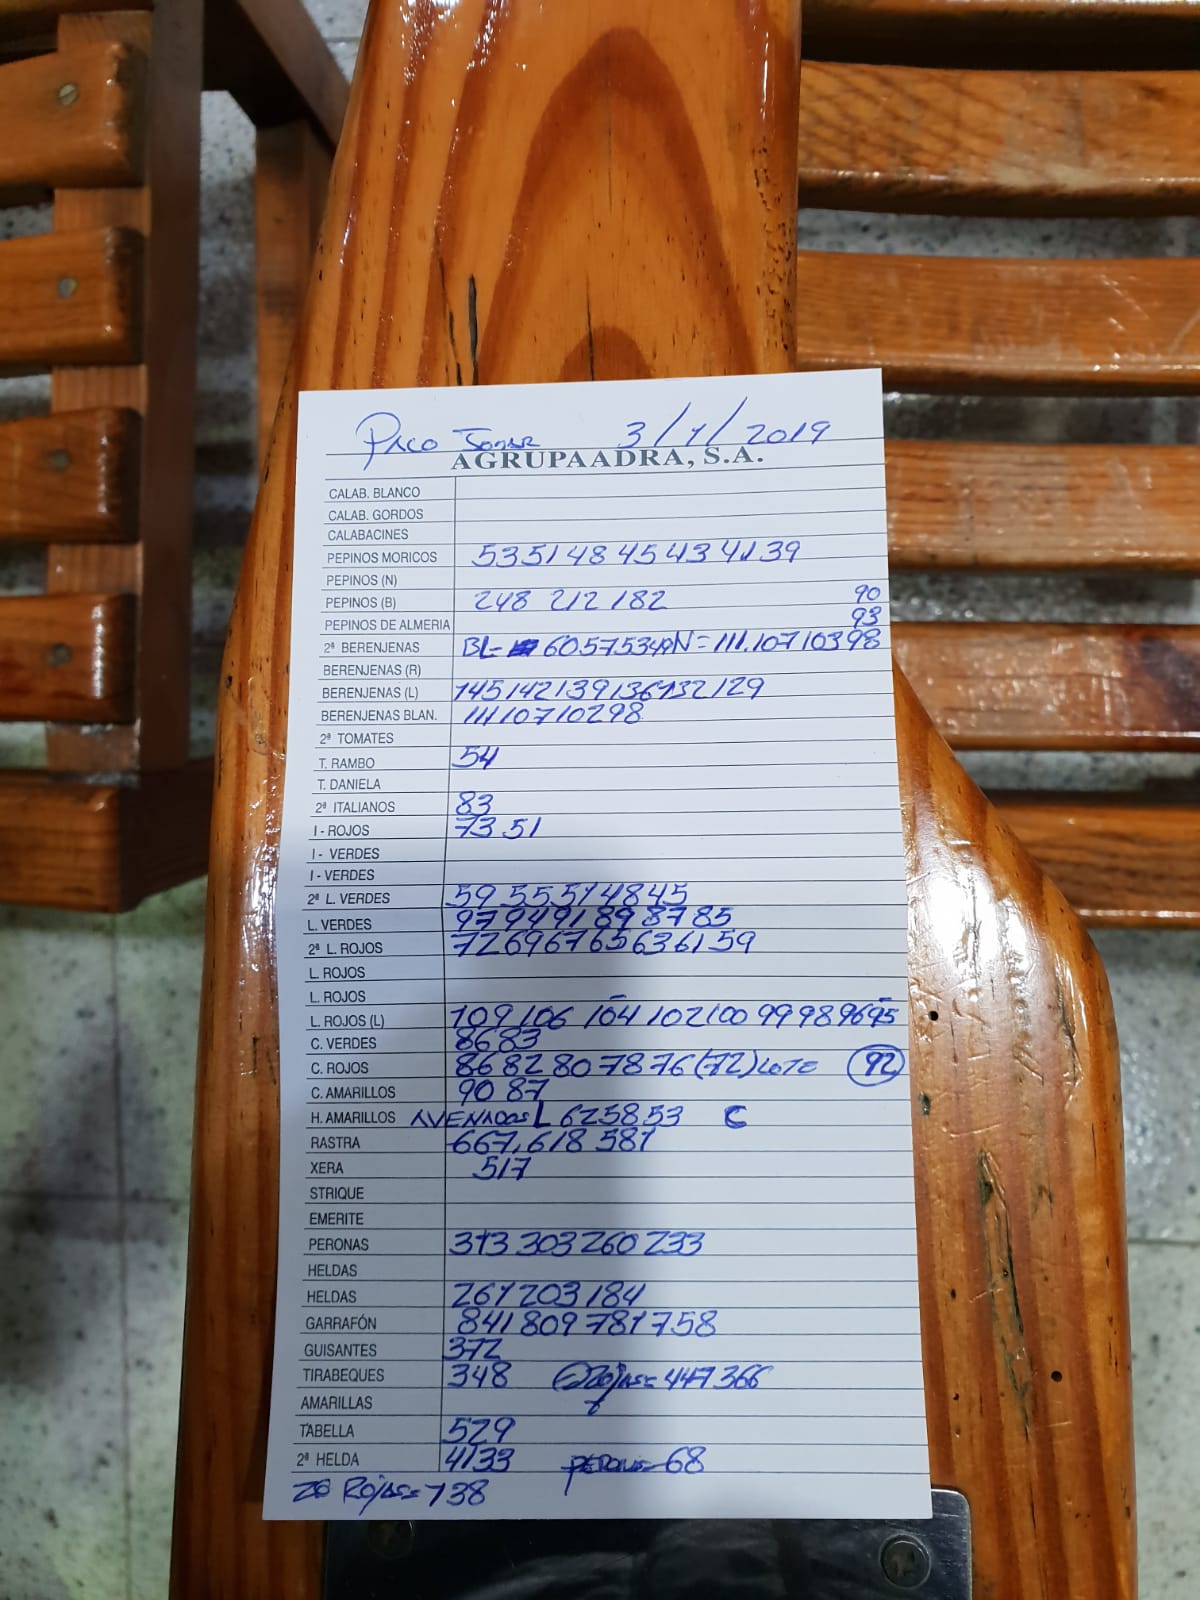 Paco 3/1/2019
AGRUPAADRA, S.A.
CALAB. BLANCO
CALAB. GORDOS
CALABACINES
PEPINOS MORICOS 53 51 48 45 43 41 39
PEPINOS (N)
PEPINOS (B) 248 212 182 90
PEPINOS DE ALMERIA 93
2ª BERENJENAS BL- 60 57 53 N= 111.107 103 98
BERENJENAS (R)
BERENJENAS (L) 145 142 139 136 132 129
BERENJENAS BLAN. 111 107 102 98
2ª TOMATES
T. RAMBO 54
T. DANIELA
2ª ITALIANOS 83
I - ROJOS 73 51
I - VERDES
I - VERDES
2ª L. VERDES 59 55 51 48 45
L. VERDES 97 94 91 89 87 85
2ª L. ROJOS 72 69 67 65 63 61 59
L. ROJOS
L. ROJOS
L. ROJOS (L) 109 106 104 102 100 99 98 96 95
C. VERDES 86 83
C. ROJOS 86 82 80 78 76 (72) LOTE 92
C. AMARILLOS 90 87
H. AMARILLOS AVENADOS L 62 58 53 C
RASTRA 667, 618 581
XERA 517
STRIQUE
EMERITE
PERONAS 313 303 260 233
HELDAS
HELDAS 261 203 184
GARRAFÓN 841 809 781 758
GUISANTES 372
TIRABEQUES 348 Rojas= 447 366
AMARILLAS
TABELLA 529
2ª HELDA 41 33 PERONAS 68
2ª Rojas= 138